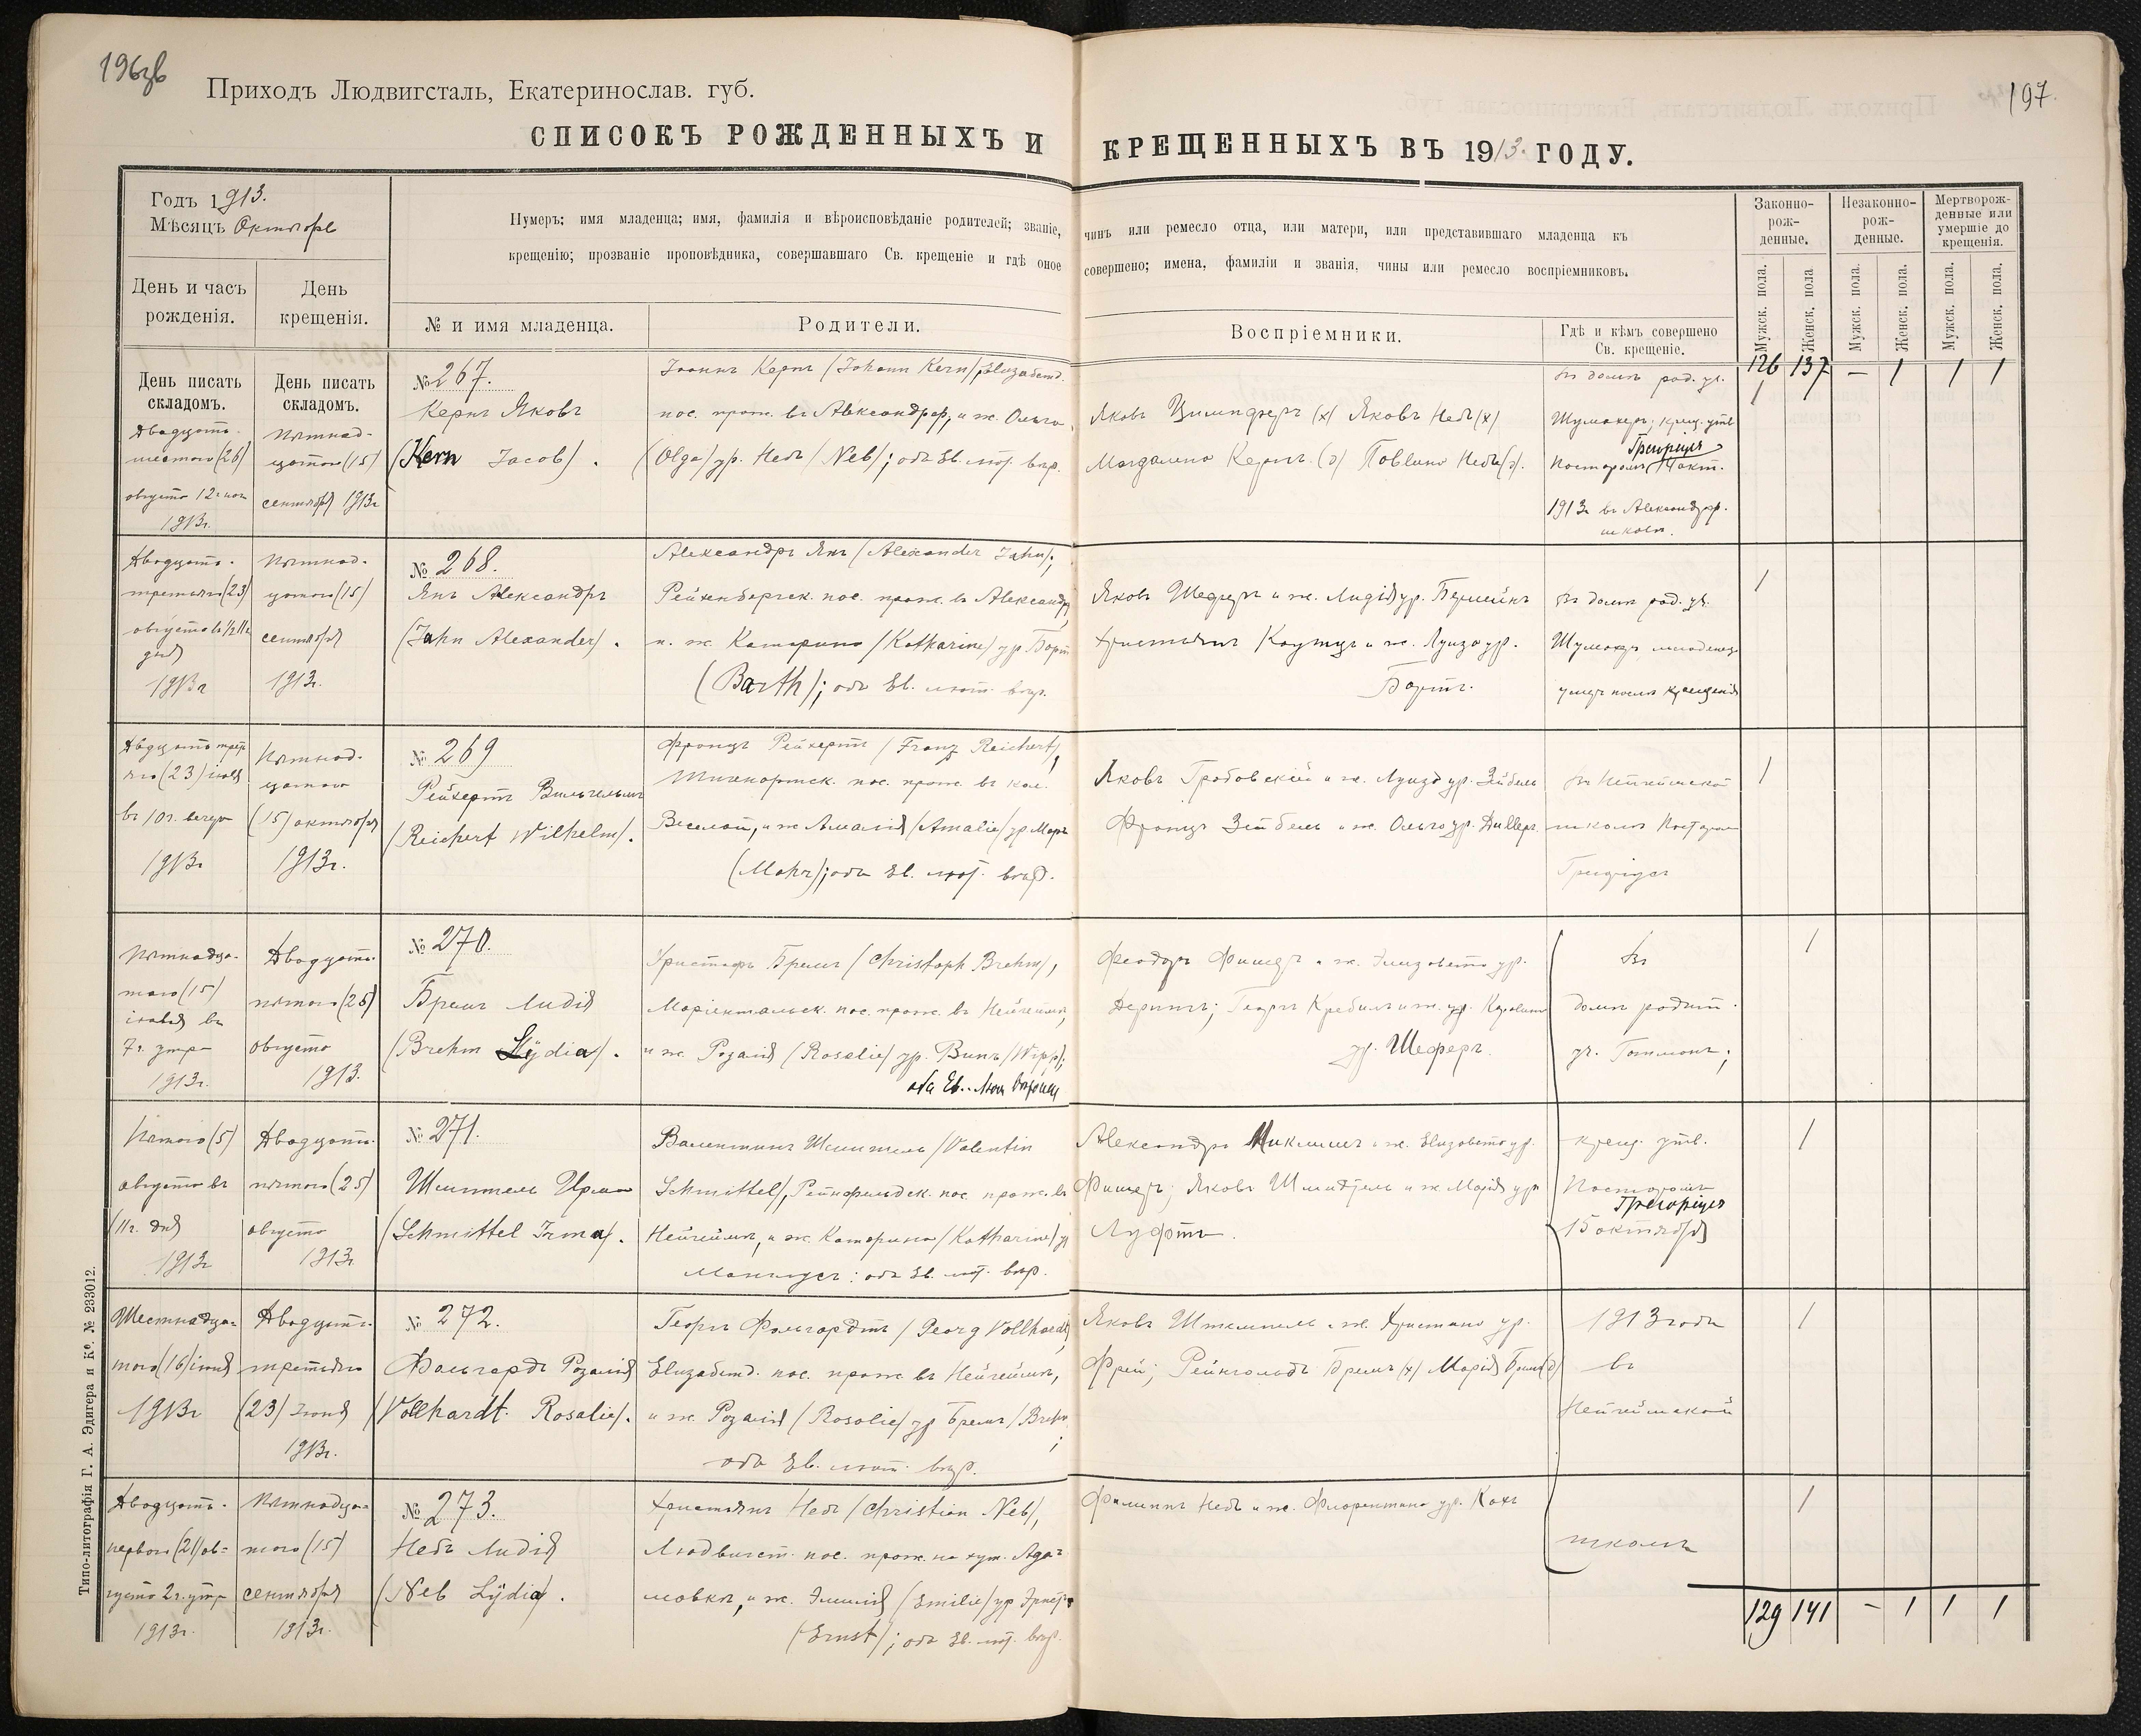 197.
Приходъ Людвигсталь, Екатеринослав. губ.
СПИСОКЪ РОЖДЕННЫХЪ И КРЕЩЕННЫХЪ ВЪ 1913. ГОДУ.
Годъ 1913.
Мѣсяцъ Октября
Нумеръ; имя младенца; имя, фамилія и вѣроисповѣданіе родителей; званіе, чинъ или ремесло отца, или матери, или представившаго младенца къ
крещенію; прозваніе проповѣдника, совершавшаго Св. крещеніе и гдѣ оное совершено; имена, фамиліи и званія, чины или ремесло воспріемниковъ.
Законно-
рож-
денные.
Незаконно-
рож-
денные.
Мертворож-
денные или
умершіе до
крещенія.
День и часъ
рожденія.
День
крещенія.
№ и имя младенца.
Родители.
Воспріемники.
Гдѣ и кѣмъ совершено
Св. крещеніе.
Мужск. пола.
Женск. пола
Мужск. пола.
Женск. пола.
Мужск. пола.
Женск. пола.
126 137 — 1 1 1
День писать
складомъ.
День писать
складомъ.
Двадцать-
шестого (26)
августа
1913г.
Пятнад-
цатого (15)
сентября 1913г
№ 267.
Кернъ Яковъ
(Kern Jacob).
Іоаннъ Кернъ (Johann Kern)
пос. прож. въ Александроф, и ж. Ольга
(Olga) ур. Небъ (Neb); оба Ев. лют. вѣр.
Яковъ Яковъ Небъ (х)
Магдалина Кернъ (д) Павлина Небъ (д).
въ домѣ род. уч.
Шумахеръ; крещ. утв
Пасторомъ Грегоріусъ окт.
1913г въ Александроф.
школѣ.
1
Двадцать-
третьяго (23)
августа
дня
1913г
Пятнад-
цатого (15)
сентября
1913г.
№ 268.
Янъ Александръ
(Jahn Alexander).
Александръ Янъ (Alexander Jahn);
Рейхенбергск. пос. прож. въ Александр,
и ж. Катарина (Katharine) ур Бартъ
(Barth); оба Ев. лют. вѣр.
Яковъ Шеферъ и ж. Лидія ур.
Христіанъ Каутцъ и ж. Луиза ур.
Бартъ.
въ домѣ род. уч.
младенецъ
умеръ послѣ крещенія
1
Двадцать треть
яго (23) іюля
въ 10г. вечера
1913г
Пятнад-
цатого
(15) октября
1913г.
№ 269
Рейхертъ Вильгельмъ
(Reichert Wilhelm).
Францъ Рейхертъ (Franz Reichert),
пос. прож. въ кол.
Веселой, и ж Амалія (Amalie) ур Моръ
(Mohr); оба Ев. лют. вѣр.
Яковъ Грабовскій и ж. Луиза ур. Зейбель
Францъ Зейбель и ж. Ольга ур.
школѣ Пасторомъ
Грегоріусъ
1
Пятнадца-
таго (15)
іюля въ
7г. утра
1913г.
Двадцать-
пятого (25)
августа
1913.
№ 270.
Бремъ Лидія
(Brehm Lÿdia).
Христофъ Бремъ (Christoph Brehm),
Маріентальск. пос. прож. въ Нейгеймѣ,
и ж. Розалія (Rosalie) ур. Випъ (Wipp);
оба Ев. Лют вѣроисп
Феодоръ Фишеръ и ж. Элизабета ур.
Георгъ и ж.
ур. Шеферъ.
Въ
домѣ родит.
уч. Готманъ;
1
Пятого (5)
августа въ
11г. дня
1913г
Двадцать-
пятого (25)
августа
1913г
№ 271.
Шмиттель Ирма
(Schmittel Irma).
Валентинъ Шмиттель (Valentin
Schmittel), Рейнфельдск. пос. прож. въ
Нейгеймѣ, и ж. Катарина (Katharine) ур
оба Ев. лют. вѣр.
Александръ Миклишъ и ж. Елизавета ур.
Фишеръ; Яковъ и ж Марія ур
Луфтъ.
крещ. утв.
Пасторомъ
Грегоріусъ
15 октября
1
Шестнадца-
таго (16) іюня
1913г
Двадцать-
третьяго
(23) Іюня
1913г.
№ 272.
Фольгардъ Розалія
(Vollhardt Rosalie).
Георгъ Фольгардтъ (Georg Vollhardt)
Елизабетд. пос. прож въ Нейгеймѣ,
и ж. Розалія (Rosalie) ур Бремъ (Brehm
оба Ев. лют. вѣр.
Яковъ Штемпель и ж. Христина ур.
Фрей; Рейнгольдъ Бремъ (х) Марія Бремъ (д)
1913 года
въ
Нейгеймской
1
Двадцать-
первого (21) ав-
густа 2г. утра
1913г.
Пятнадца-
того (15)
сентября
1913г.
№ 273.
Небъ Лидія
(Neb Lÿdia).
Христіанъ Небъ (Christian Neb),
Людвигст. пос. прож. на хут. Ада-
мовка, и ж. Эмилія (Emilie) ур Эрнстъ
(Ernst); оба Ев. лют. вѣр.
Филиппъ Небъ и ж. Флорентина ур. Кохъ
школѣ
1
129 141 — 1 1 1
Типо-литографія Г. А. Эдигера и Ко. № 233012.